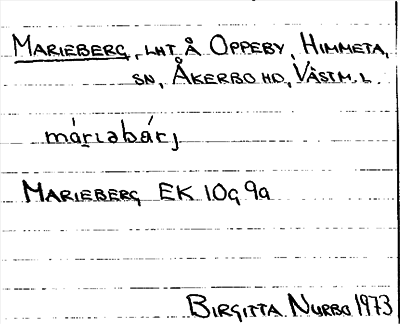 MARIEBERG, LHT Å OPPEBY, HIMMETA,
SN, ÅKERBO HD, VÄSTM. L.
márıabárj
MARIEBERG EK 10G 9a
BIRGITTA NURBO 1973